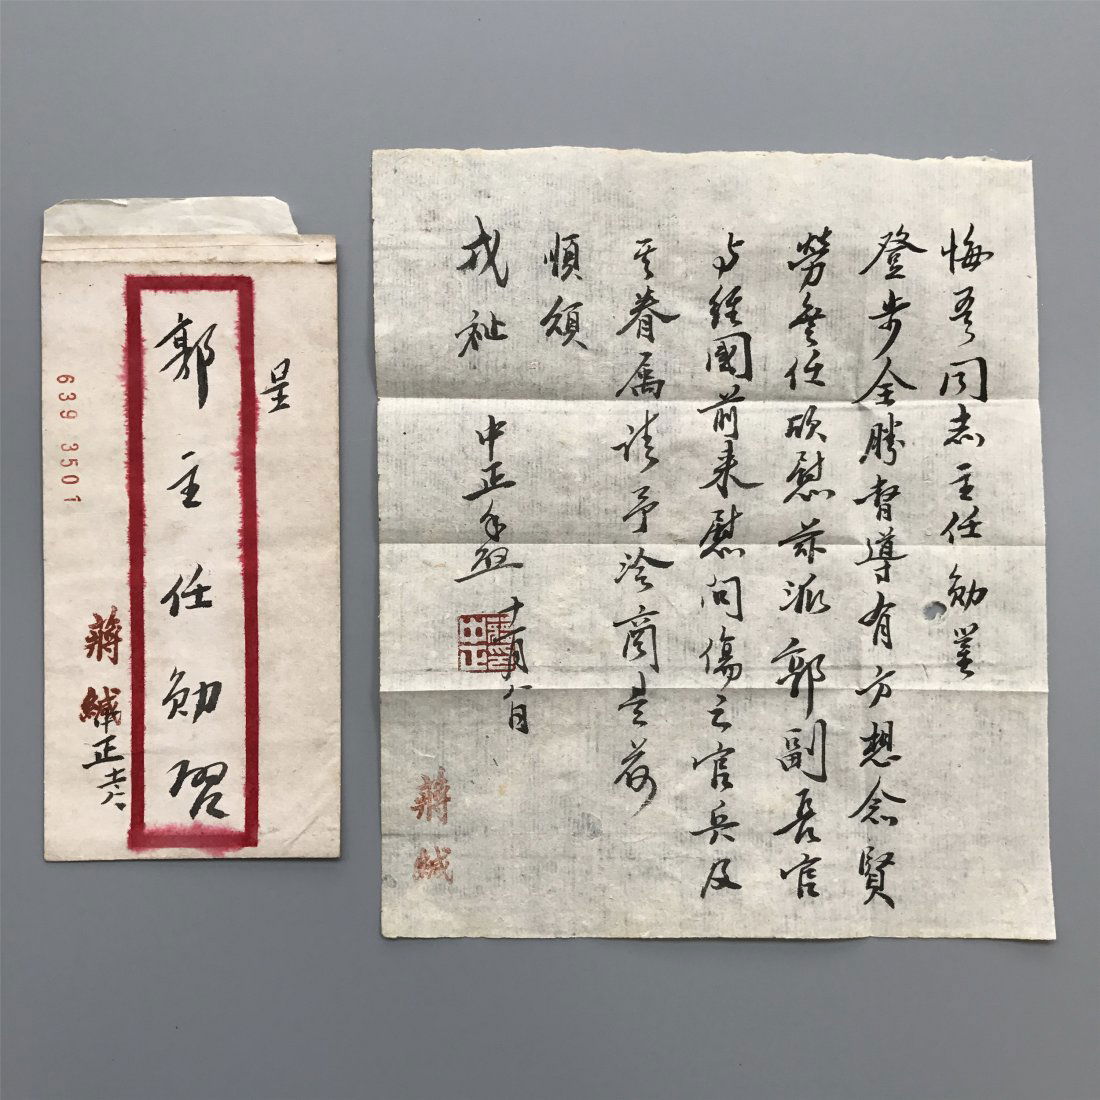 呈
郭主任勛啟
蔣緘
中正 十一、八
639 3501
悔吾同志主任勛鑒
登步全勝督導有方想念賢
勞無任欣慰茲派郭副長官
與經國前來慰問傷亡官兵及
其眷属請予洽商是荷
順頌
戎祉
中正手啟 十一月八日
中正
蔣緘